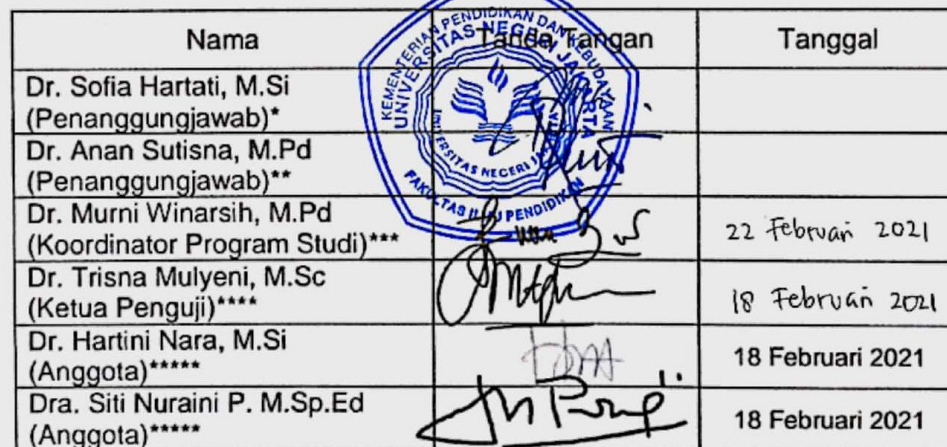 Nama Tanda Tangan Tanggal
Dr. Sofia Hartati, M.Si
(Penanggungjawab)*
Dr. Anan Sutisna, M.Pd
(Penanggungjawab)**
Dr. Murni Winarsih, M.Pd
(Koordinator Program Studi)*** 22 Februari 2021
Dr. Trisna Mulyeni, M.Sc
(Ketua Penguji)**** 18 Februari 2021
Dr. Hartini Nara, M.Si
(Anggota)***** 18 Februari 2021
Dra. Siti Nuraini P. M.Sp.Ed
(Anggota)***** 18 Februari 2021
KEMENTERIAN PENDIDIKAN DAN KEBUDAYAAN
UNIVERSITAS NEGERI JAKARTA
UNIVERSITAS NEGERI JAKARTA
FAKULTAS ILMU PENDIDIKAN